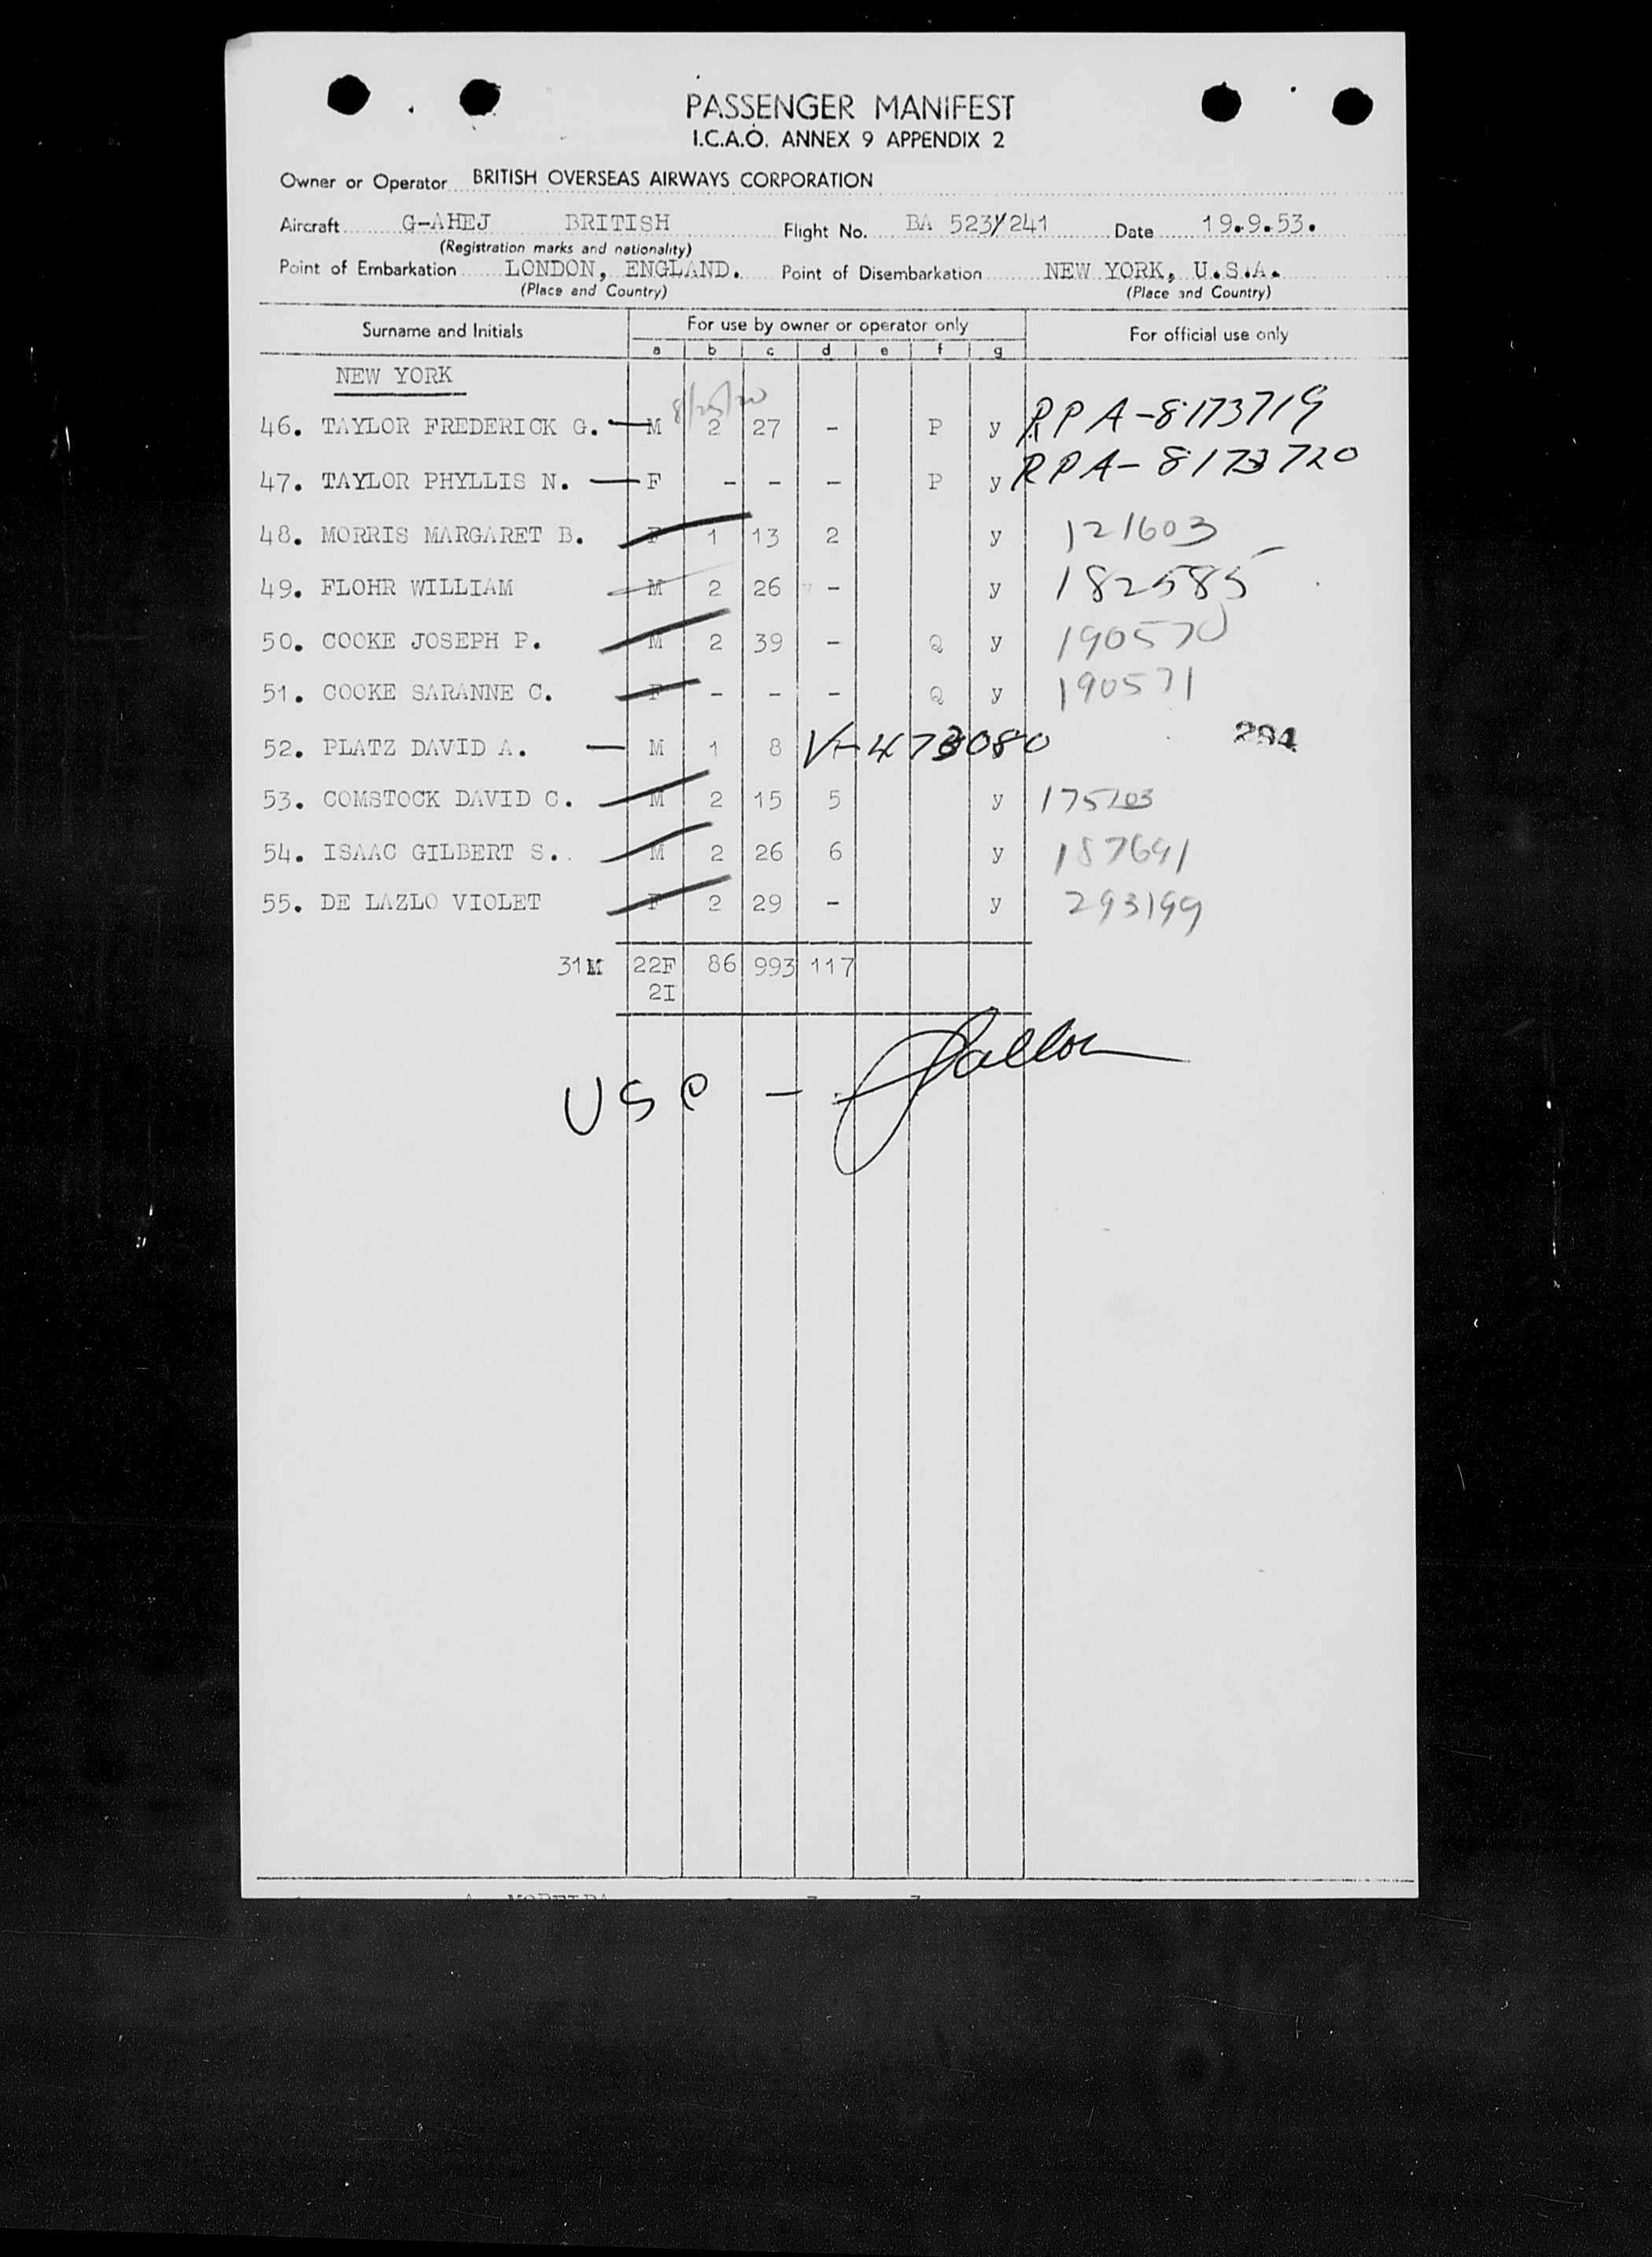 PASSENGER MANIFEST
I.C.A.O. ANNEX 9 APPENDIX 2
Owner or Operator BRITISH OVERSEAS AIRWAYS CORPORATION
Aircraft G-AHEJ BRITISH Flight No. BA 523/241 Date 19.9.53.
(Registration marks and nationality)
Point of Embarkation LONDON, ENGLAND. Point of Disembarkation NEW YORK, U.S.A.
(Place and Country) (Place and Country)
Surname and Initials For use by owner or operator only For official use only
a b c d e f g
NEW YORK
46. TAYLOR FREDERICK G. — M 2 27 - P y RPA-8173719
47. TAYLOR PHYLLIS N. — F - - - P y RPA-8173720
48. MORRIS MARGARET B. F 1 13 2 y 121603
49. FLOHR WILLIAM M 2 26 - y 182585
50. COOKE JOSEPH P. M 2 39 - Q y 190570
51. COOKE SARANNE C. F - - - Q y 190571
52. PLATZ DAVID A. — M 1 8 V-473080 294
53. COMSTOCK DAVID C. M 2 15 5 y 175103
54. ISAAC GILBERT S. M 2 26 6 y 187691
55. DE LAZLO VIOLET F 2 29 - y 293199
31M 22F 86 993 117
2I
USC -